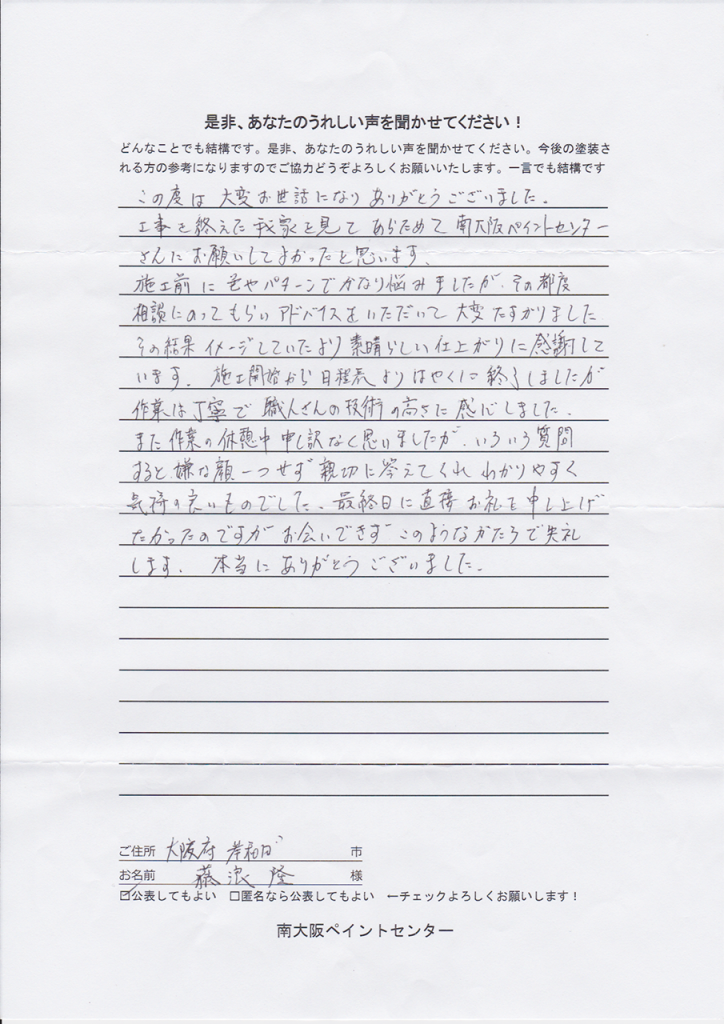 是非、あなたのうれしい声を聞かせてください！
どんなことでも結構です。是非、あなたのうれしい声を聞かせてください。今後の塗装さ
れる方の参考になりますのでご協力どうぞよろしくお願いいたします。一言でも結構です
この度は 大変お世話になり ありがとうございました。
工事を終えた 我家を見て あらためて 南大阪ペイントセンター
さんに お願いしてよかったと思います。
施工前に 色やパターンでかなり悩みましたが、その都度
相談にのってもらい アドバイスをいただいて 大変たすかりました
その結果 イメージしていたより 素晴らしい仕上がりに感謝して
います。 施工開始から 日程表 よりはやくに 終了しましたが
作業は丁寧で 職人さんの技術の高さに 感心しました。
また 作業の休憩中 申し訳なく思いましたが、いろいろ質問
すると 嫌な顔一つせず 親切に答えてくれ わかりやすく
気持の良いものでした。最終日に直接 お礼を申し上げ
たかったのですが お会いできず このようなかたちで失礼
します。 本当に ありがとうございました。
ご住所 大阪府 岸和田 市
お名前 藤浪 隆 様
☑公表してもよい □匿名なら公表してもよい ←チェックよろしくお願いします！
南大阪ペイントセンター